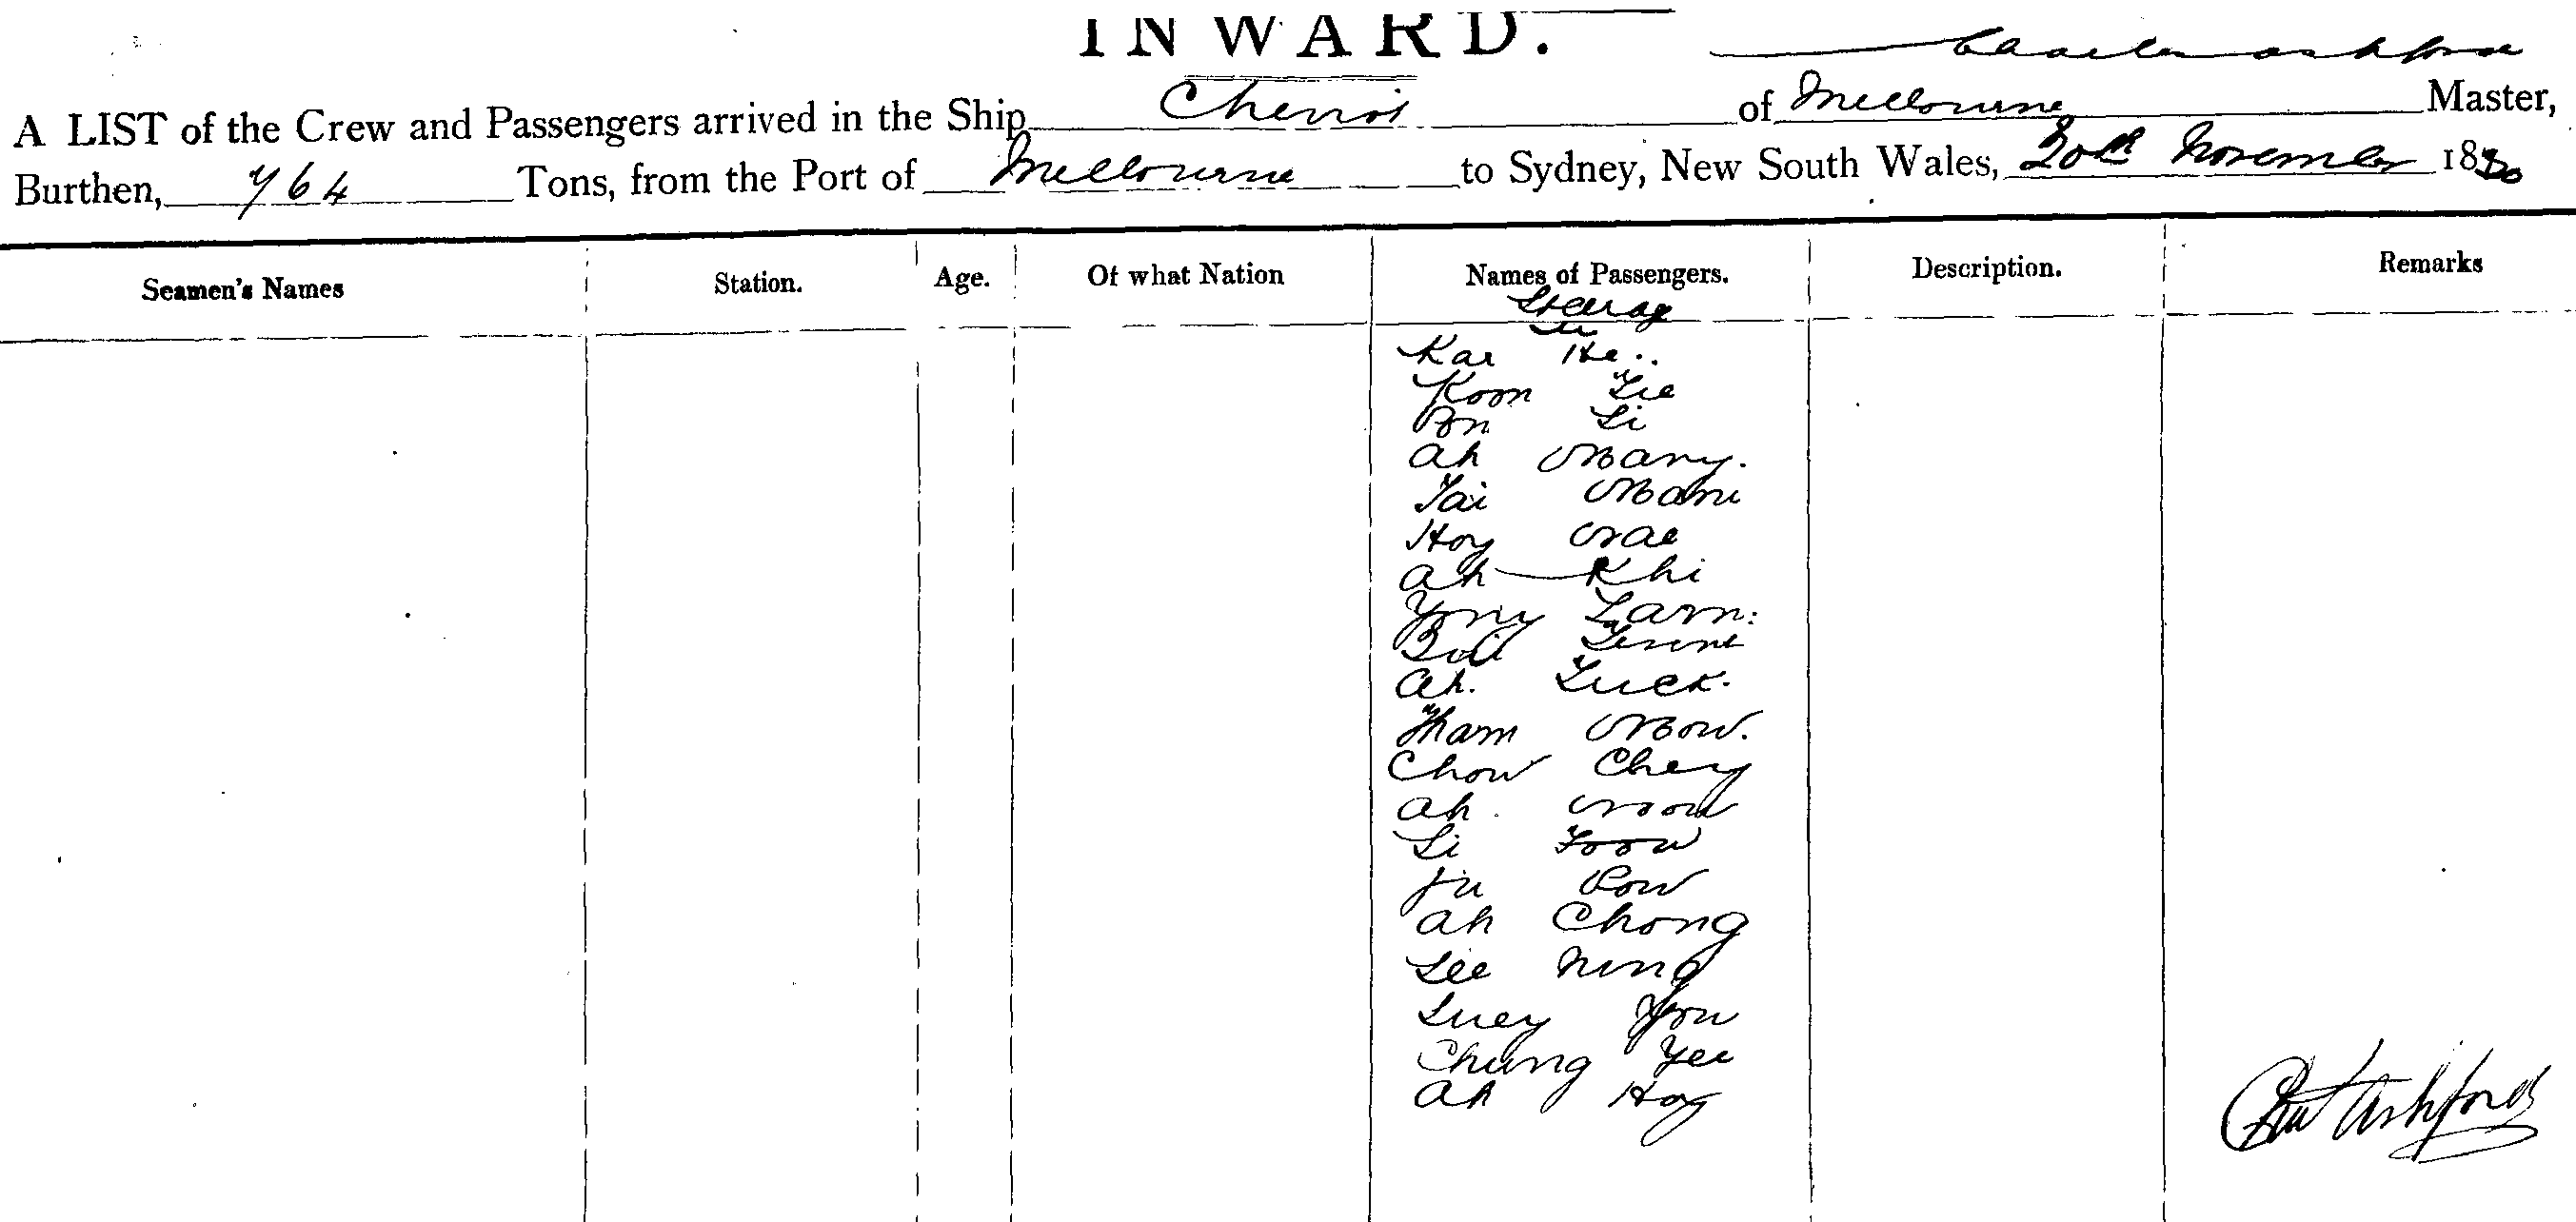 INWARD.
Charles Ashford
A LIST of the Crew and Passengers arrived in the Ship Cheviot of Melbourne Master,
Burthen, 764 Tons, from the Port of Melbourne to Sydney, New South Wales, 20th November 1880
Seamen's Names Station. Age. Of what Nation Names of Passengers. Description. Remarks
Steerage
Kar He
Koon Lie
Li
Ah Many.
Tai
Hoy
Ah Khi
Yony Larn:
Ah. Luck.
Tham Mow.
Chow Chey
Ah
Li Foow
Pow
Ah Chong
See Ning
Suey You
Chung Yee
Ah Hoy
Chas Ashford